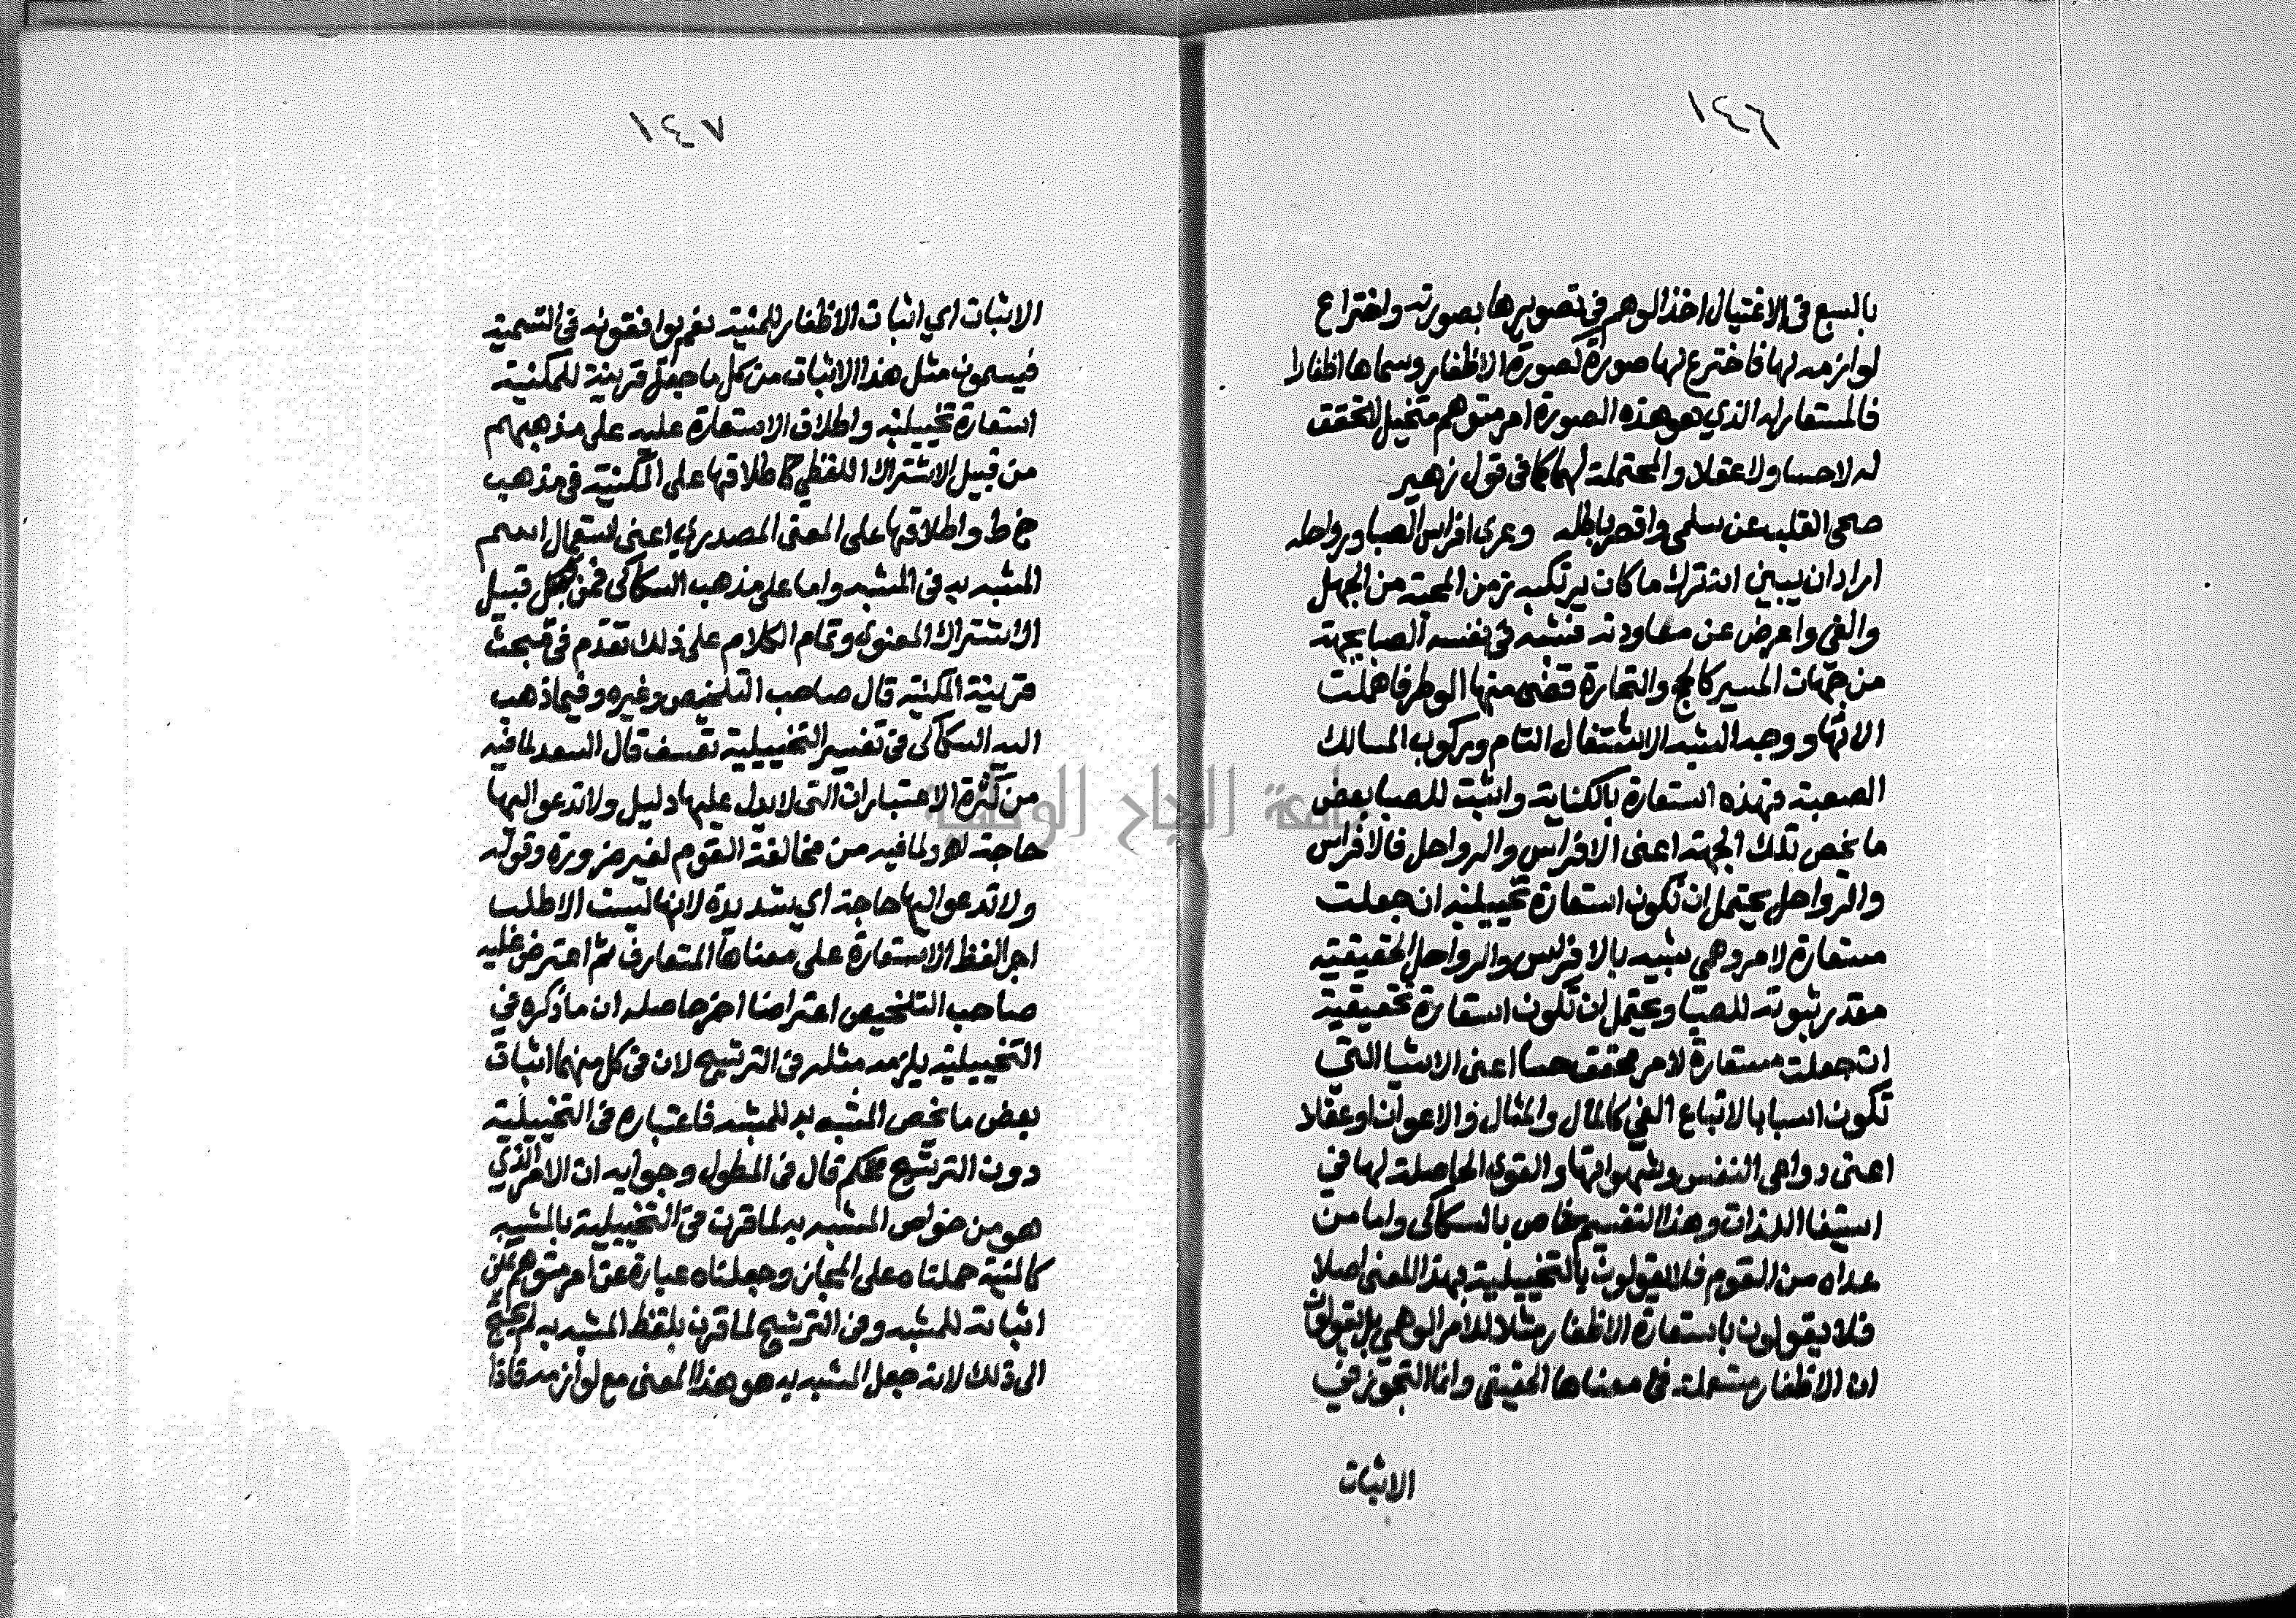 ١٤٦
بالسبع في الاغتيال اخذ الوهم في تصويرها بصورته واختراع
لوازمه لها فاخترع لها صورة كصورة الاظفار وسماها اظفارا
فالمستعار له الذي هو هذه الصورة امر متوهم متخيل لا تحقق
له لا حسا ولا عقلا والمحتملة لهما كما في قول زهير
صحى القلب عن سلمى واقصر باطله وعرى افراس الصبا ورواحله
اراد ان يبين انه ترك ما كان يرتكبه زمن المحبة من الجهل
والغي واعرض عن معاودته فشبه في نفسه الصبا بجهة
من جهات المسير كالحج والتجارة قضى منها الوطر فاهملت
الاتها ووجه الشبه الاشتغال التام وركوب المسالك
الصعبة فهذه استعارة بالكناية واثبت للصبا بعض
ما يخص تلك الجهة اعني الافراس والرواحل فالافراس
والرواحل يحتمل ان تكون استعارة تخييلية ان جعلت
مستعارة لامر وهمي شبيه بالافراس والرواحل الحقيقية
مقدر ثبوته للصبا ويحتمل ان تكون استعارة تحقيقية
ان جعلت مستعارة لامر محقق حسا اعني الاشيا التي
تكون اسبابا لاتباع الغي كالمال والمثال والاعوان او عقلا
اعني دواعي النفس وشهواتها والقوى الحاصلة لها في
استيفا اللذات وهذا التقسيم خاص بالسكاكي واما من
عداه من القوم فلا يقولون بالتخييلية بهذا المعنى اصلا
فلا يقولون باستعارة الاظفار مثلا للامر الوهمي بل يقولون
ان الاظفار مستعملة في معناها الحقيقي وانما التجوز في
الاثبات
١٤٧
الاثبات اي اثبات الاظفار للمنية نعم يوافقونه في التسمية
فيسمون مثل هذا الاثبات من كل ما جعل قرينة للمكنية
استعارة تخييلية واطلاق الاستعارة عليه على مذهبهم
من قبيل الاشتراك اللفظي كاطلاقها على المكنية في مذهب
خ ط واطلاقها على المعنى المصدري اعني استعمال اسم
المشبه به في المشبه واما على مذهب السكاكي فمن قبيل
الاشتراك المعنوي وتمام الكلام على ذلك تقدم في مبحث
قرينة المكنية قال صاحب التلخيص وغيره وفيما ذهب
اليه السكاكي في تفسير التخييلية تعسف قال السعد لما فيه
من كثرة الاعتبارات التي لا يدل عليها دليل ولا تدعو اليها
حاجة ولما فيه من مخالفة القوم لغير ضرورة وقوله
ولا تدعو اليها حاجة اي شديدة لانها ليست الا طلب
اجر الفظ الاستعارة على معناها المتعارف ثم اعترض عليه
صاحب التلخيص اعتراضا اخر حاصله ان ما ذكره في
التخييلية يلزمه مثله في الترشيح لان في كل منهما اثبات
بعض ما يخص المشبه به للمشبه فاعتباره في التخييلية
دون الترشيح تحكم قال في المطول وجوابه ان الامر الذي
هو من خواص المشبه به لما قرن في التخييلية بالمشبه
كالمنية حملناه على المجاز وجعلناه عبارة عن امر متوهم يمكن
اثباته للمشبه وفي الترشيح لما قرن بلفظ المشبه به لم يحتج
الى ذلك لانه جعل المشبه به هو هذا المعنى مع لوازمه فاذا
جامعة النجاح الوطنية